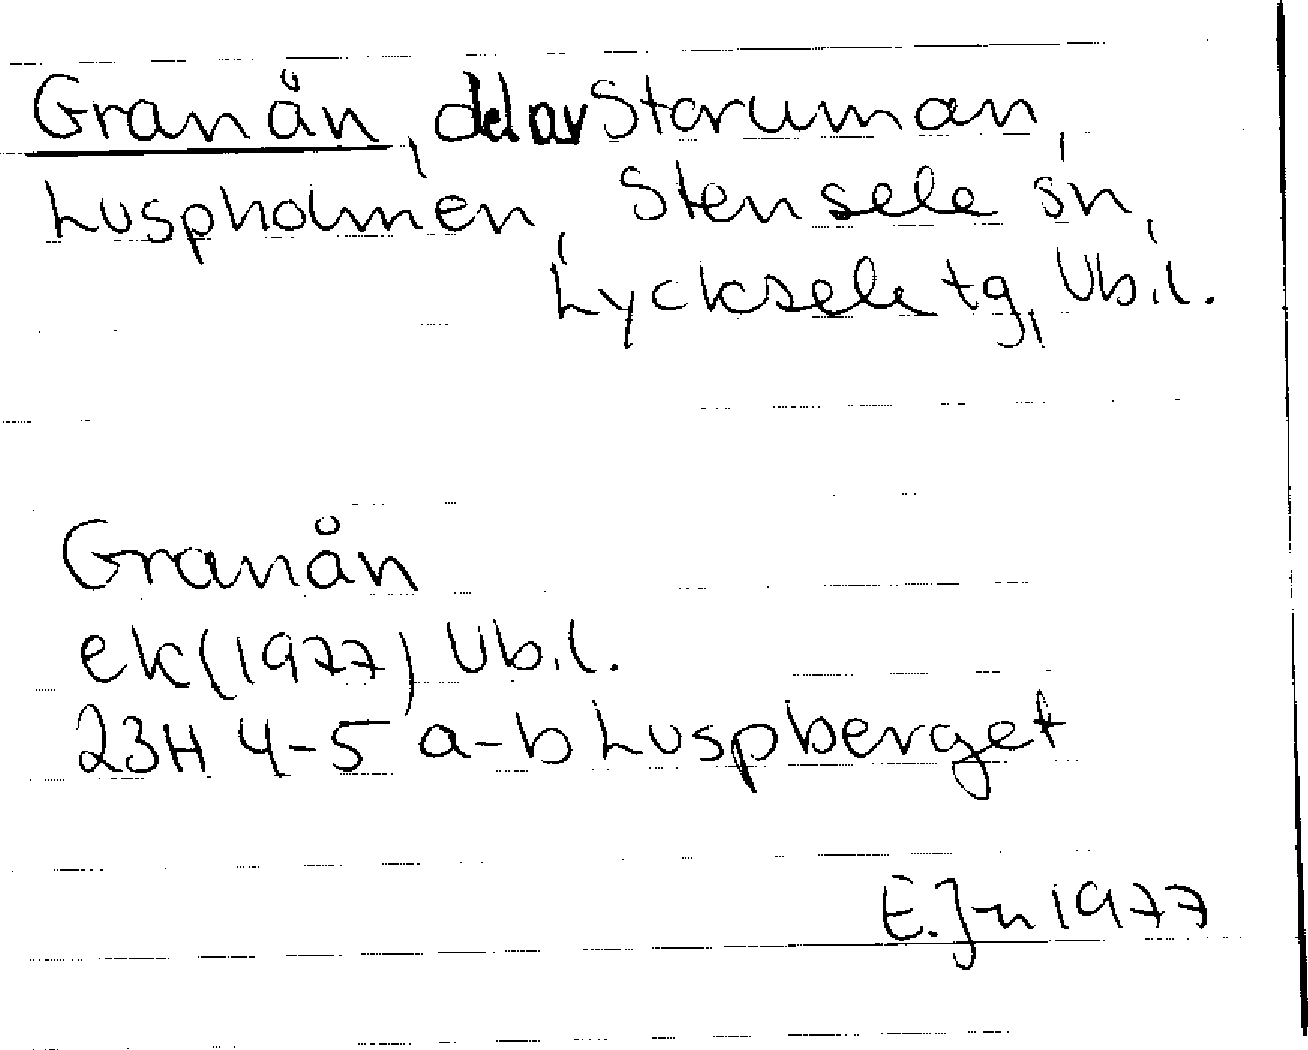 Granån, del av Storuman,
Luspholmen, Stensele sn,
Lycksele tg, Vb.l.
Granån
ek (1977) Vb.l.
23H 4-5 a-b Luspberget
E. Jn 1977